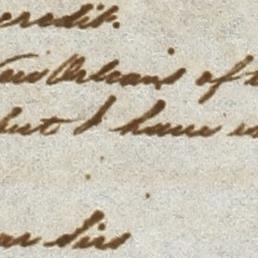 credit.
Orleans of
but I have
Sirs